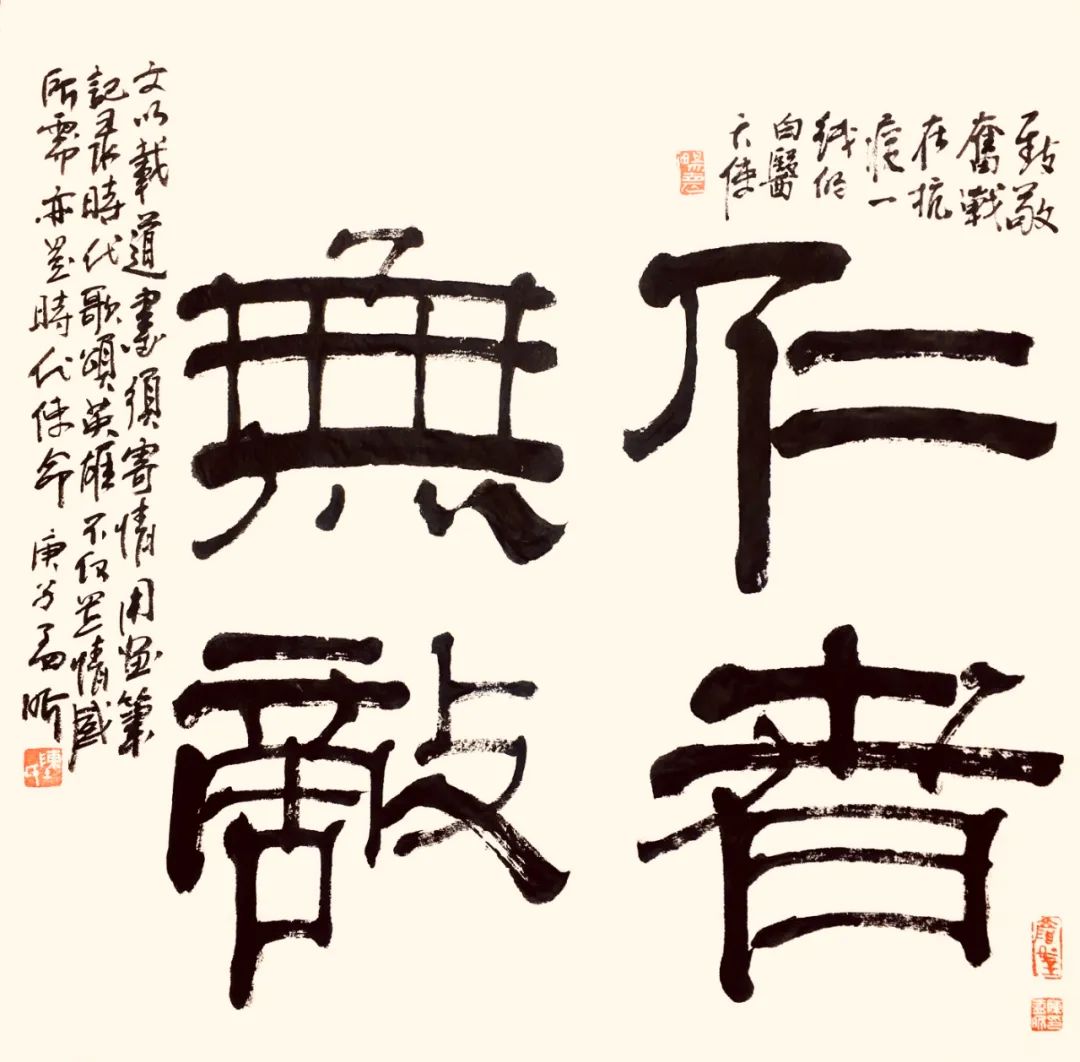 致敬
奮戰
在抗
疫一
线的
白醫
天使
仁者
無敵
文以載道畫須寄情用畫筆
記录時代歌頌英雄不仅是情感
所需亦是時代使命 庚子孟昕